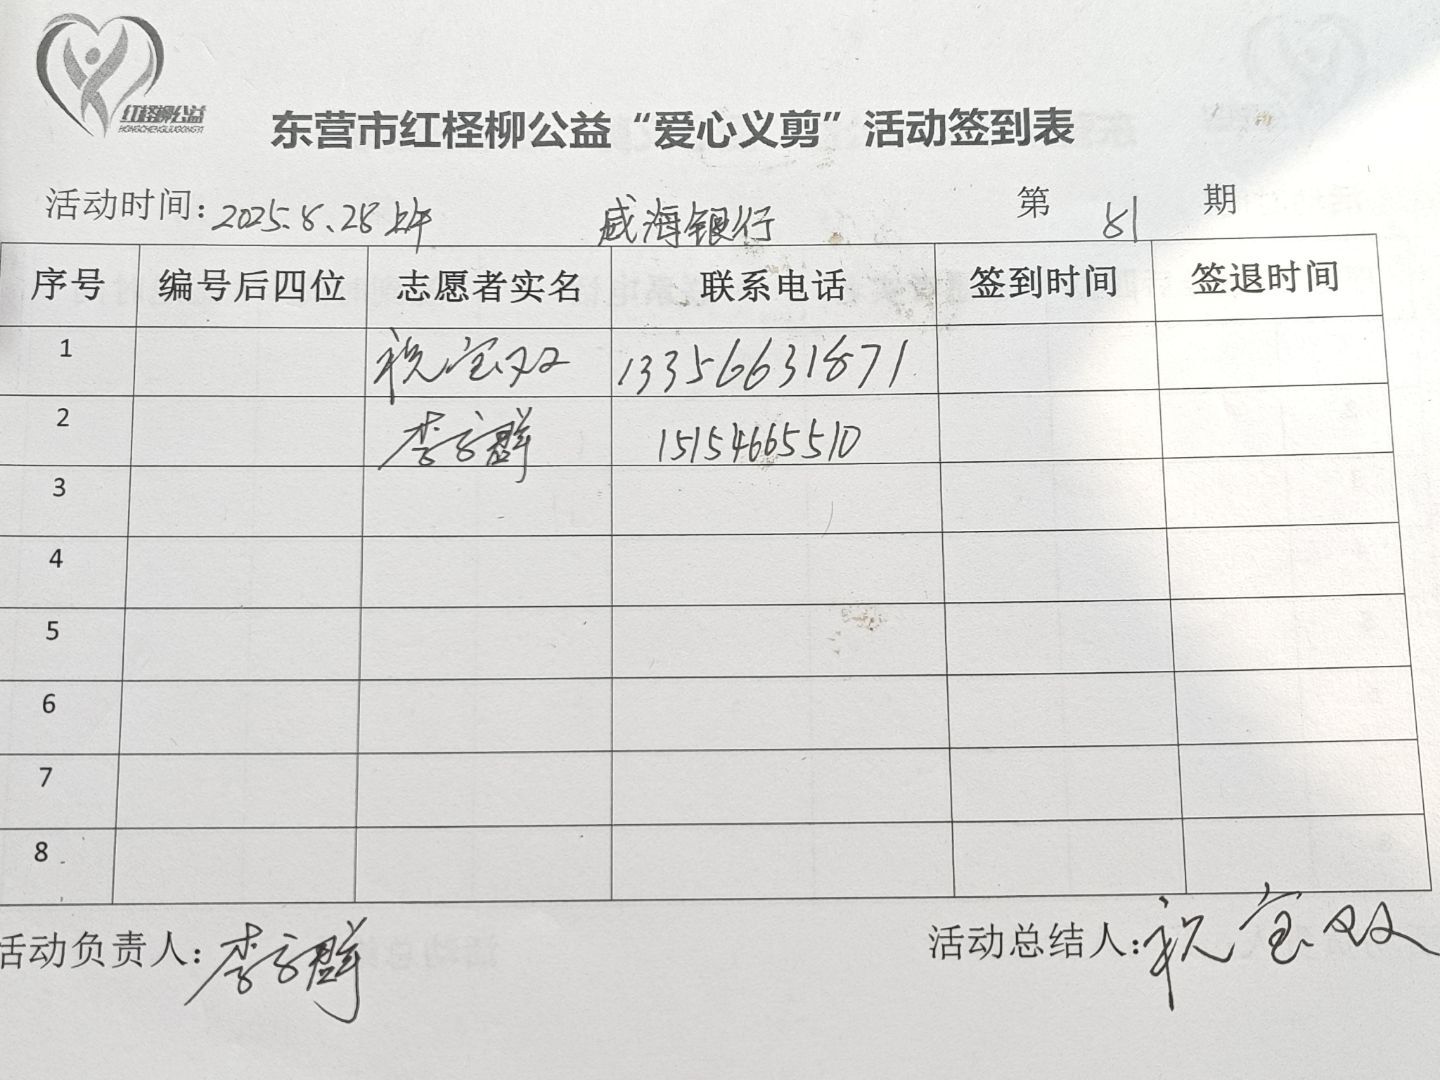 红柽柳公益
HONGCHENGLIUGONGYI
东营市红柽柳公益“爱心义剪”活动签到表
活动时间：2025.8.28上午 威海银行 第 81 期
序号 编号后四位 志愿者实名 联系电话 签到时间 签退时间
1 祝宝双 13356631871
2 李方群 15154665510
3
4
5
6
7
8
活动负责人：李方群 活动总结人：祝宝双